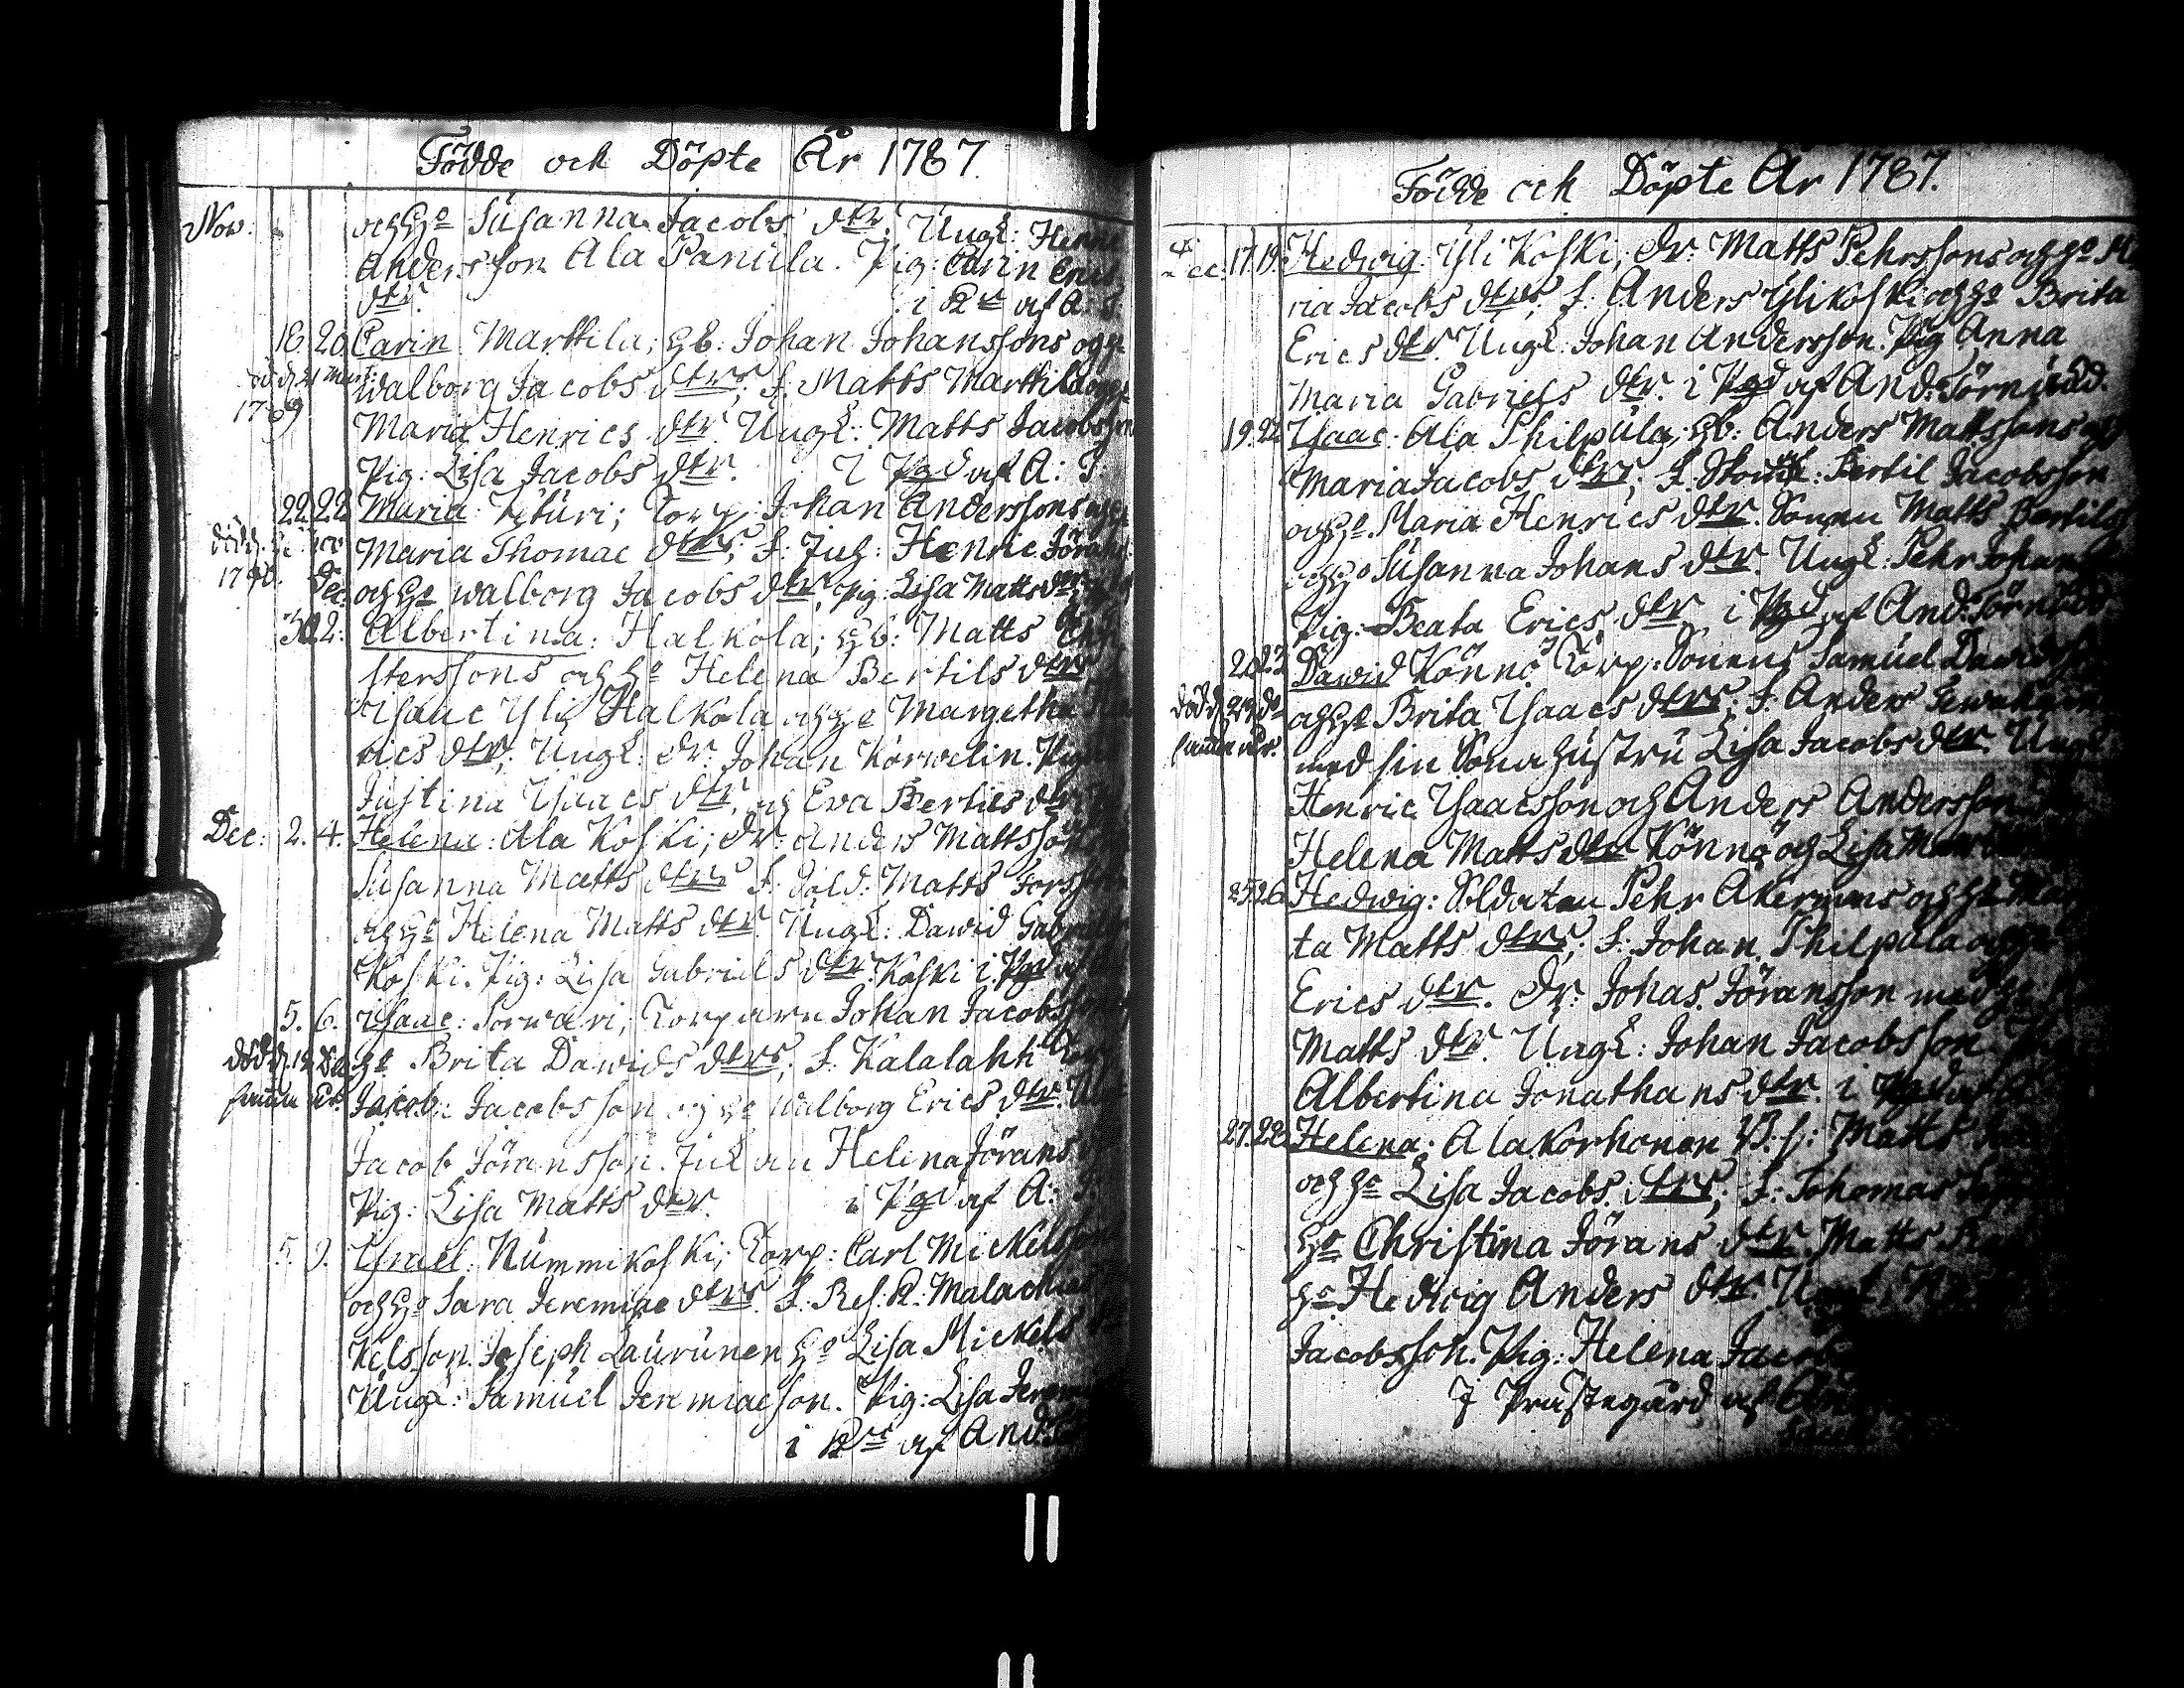 Födde och Döpte År 1787.
Nov: och Hu Susanna Jacobs dtr. Ungk: Henric
Andersson Ala Panula. Pig: Carin Erics
dtr. i Kn af A: T.
18. 20. Carin Marttila; Hb: Johan Johanssons och Hu
död d. 21 Mart: Walborg Jacobs dtrs; F: Matts Marttila och Hu
1789 Maria Henrics dtr. Ungk: Matts Jacobsson
Pig: Lisa Jacobs dtr. I Pgd af A: T.
22. 22. Maria: Torp: Johan Anderssons och Hu
död d. Maria Thomae dtrs; F: Inh: Henric Jörans
1790. Dec: och Hu Walborg Jacobs dtr, Pig: Lisa Matts dtr
30. 2. Albertina: Halkola; Hb: Matts Chri
sterssons och Hu Helena Bertils dtrs
Isaac Yli Halkola och Hu Margetha Hen
rics dtr; Ungk: Dr: Johan Korwelin. Pig
Justina Isaacs dtr, och Eva Bertils dtr
Dec: 2. 4. Helena: Ala Koski; Dr: Anders Mattsson
Susanna Matts dtrs F: Sold: Matts Forss
och Hu Helena Matts dtr. Ungk: Dawid Gabriels
Koski. Pig: Lisa Gabriels dtr. Koski i Pgd af
5. 6. Isaac: Sorwari; Torparen Johan Jacobssons
död d. 12 Hu Brita Dawids dtrs; F: Kalalahti
samma år. Jacob Jacobsson och Hu Walborg Erics dtr.
Jacob Jöransson. Inh Helena Jörans
Pig: Lisa Matts dtr. i Pgd af A: T.
5. 9. Israel: Nummikoski; Torp: Carl Mickelssons
och Hu Sara Jeremiae dtrs. F: Res. K: Malachias
kelsson. Joseph Laurunen Hu Lisa Mickels
Ungk: Samuel Jeremiaeson. Pig: Lisa Jerem
i Kn af And:
Födde och Döpte År 1787.
Dec: 17. 19. Hedwig: Yli Koski; Dr: Matts Pehrssons och Hu Ma
ria Jacobs dtrs; F: Anders Ylikoski och Hu Brita
Erics dtr. Ungk: Johan Andersson. Pig Anna
Maria Gabriels dtr. i Pgd af And: Törnudd.
19. 22. Isaac: Ala Philpula; Hb: Anders Mattssons och
Maria Jacobs dtrs; F: Bertil Jacobsson
och Hu Maria Henrics dtr. Sonen Matts Bertils
och Hu Susanna Johans dtr. Ungk: Pehr Johans
Pig: Beata Erics dtr i Pgd af And: Törnudd
20. 23. Dawid Könnö Torp: Sonens Samuel Dawids
död d. 29 och Hu Brita Isaacs dtrs; F: Anders
samma år. med sin Sona hustru Lisa Jacobs dtr. Ungk
Henric Isaacsson och Anders Andersson
Helena Matts dtr Könnö och Lisa
25. 26. Hedwig: Soldaten Pehr Åkermans och Hu Mar
ta Matts dtrs; F: Johan Philpula och Hu
Erics dtr. Dr: Johas Jöransson med
Matts dtr. Ungk: Johan Jacobsson
Albertina Jonathans dtr. i Pgd af
27. 28. Helena: Ala Korhonen B. s: Matts
och Hu Lisa Jacobs dtrs; F: Thomas
Hu Christina Jörans dtr. Matts
Hu Hedwig Anders dtr.
Jacobsson. Pig: Helena Jacobs
I Prästegård af